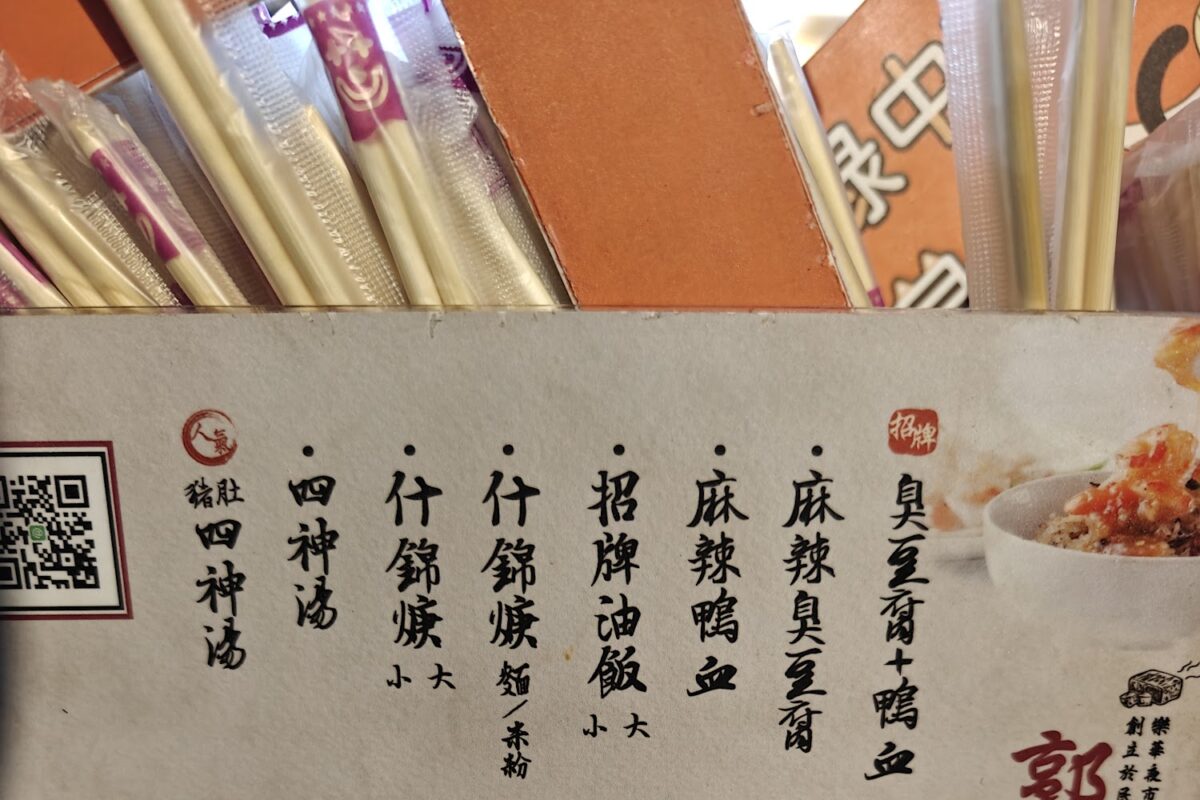 招牌
臭豆腐+鴨血
麻辣臭豆腐
麻辣鴨血
招牌油飯 大 小
什錦焿 麵/米粉
什錦焿 大 小
四神湯
人氣
豬肚四神湯
郭
樂華夜市
創立於民
中